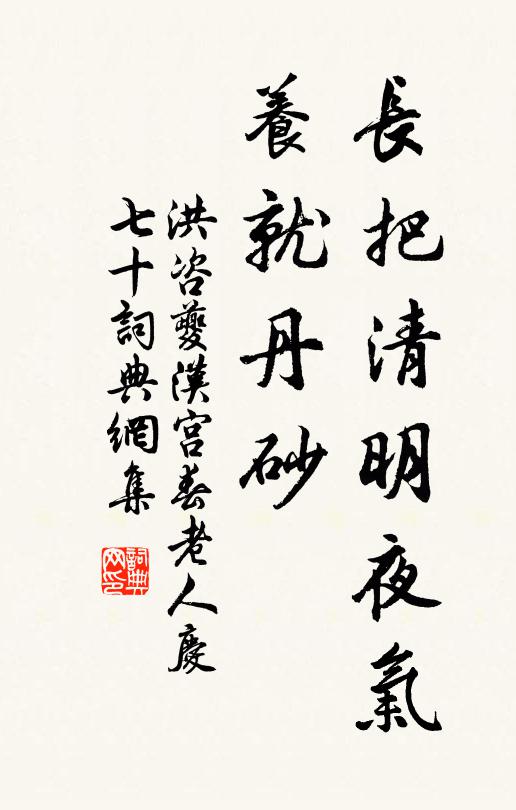 長把清明夜氣
養就丹砂
洪咨夔漢宮春老人慶
七十詞典網集
詞典網印